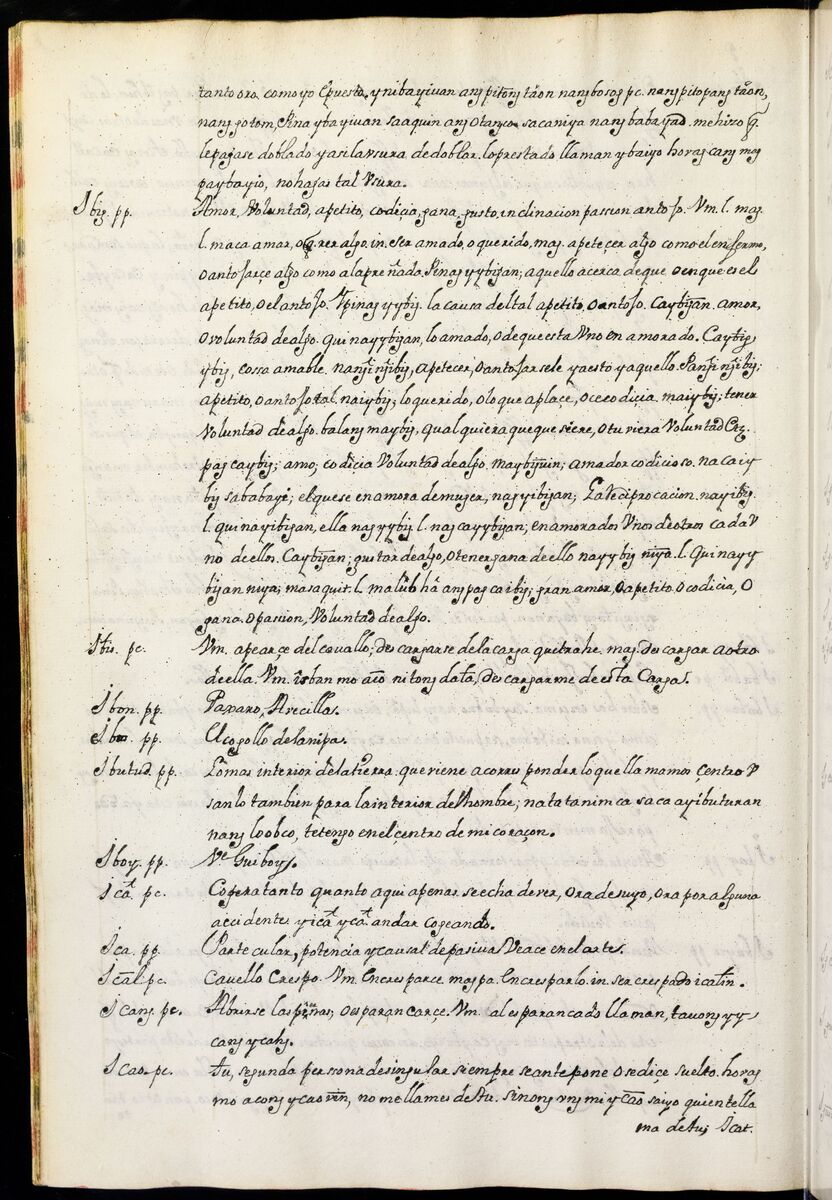 tanto oro como yo è puesto. y nibayiuan ang pitong táon nang bosog pc. nang pito pang táon,
nang gotom, Pina ybayiuan saaquin ang otang co. sa caniya nang babayad. me hizo q̃
le pagase doblado y asi la vsura. de doblar. lo prestado llaman ybaiyo horag cang mag
paybayio, no hagas tal Vsura.
Ibig. pp. Amor, Voluntad, apetito, codicia, gana, gusto, inclinacion passion antojo. Vm. l. mag.
l. maca amar, o q̃rer algo. in. ser amado, o querido, mag. apeteçer algo como el enfermo,
o antojarçe algo como ala preñada. Pinag yybigan; aquello acerca de que o en que es el
apetito, o el antojo. Ypinag yybig. la causa del tal apetito. o antojo. Caybigan. amor,
o voluntad de algo. quinayybigan, lo amado, o de que esta vno en amorado. Caybig,
ybig, cossa amable. nangingibig, apetecer, o antojarsele ya esto ya aquello. Pangingibig;
apetito, o antojo tal. naiybig; lo querido, o lo que aplaçe, o codicia. maiybig; tener
Voluntad de algo. balang maybig, qual quiera que quisiere, o tuviera Voluntad Etz.
pag caybig; amo; codicia Voluntad de algo. maybiguin; amador codicioso. nacaiy
big sa babaye; el que se enamora de muger, nag yibigan; La Reciprocacion. nayibig.
l. quinayibigan, ella nag yybig l. nag cayybigan; enamorados Vnos de otros cada V
no de ellos. Caybigan; gustar de algo, o tener gana de ello nayybig niya. l. Quinayy
bigan niya; masaquit. l. malub ha ang pag caibig; gran amor, o apetito. o codicia, o
gana. o pasion, Voluntad de algo.
Ibis. pc. Vm. apearçe del cavallo; des cargarse de la carga que trahe. mag. des cargar a otro
de ella. Vm. isban mo aco nitong data, des cargar me de esta Carga.
Ibon. pp. Paxaro, Avecilla.
Ibu. pp. El cogollo de la nipa.
Ibutud. pp. Lo mas interior de la tierra que viene a corres ponder lo que llamamos çentro V
san lo tambien para la interior del hombre; natatanim ca sa ca ayibuturan
nang loob co, te tengo en el çentro de mi coraçon.
Iboy. pp. Ve Guiboy.
Icà. pc. Cogera tanto quanto aqui apenas se echa de ver, ora de suyo, ora por alguna
accidente. yica yca. andar cogeando.
Ica. pp. Parte cular, potencia y causal de pasiua Veace en el arte.
Ical. pc. Cauello Crespo. Vm. Encresparce. magpa. Encresparlo. in. ser crespado icalin.
Icang. pc. Abrirse las piernas, o esparancarçe. Vm. al esparancado llaman, tauong yy
cang ycang.
Icao. pc. Tu, segunda persona de singular siempre se ante pone o se diçe suelto. horag
mo acong ycao ven, no me llames de tu. Sinong vng mi ycao saiyo quien te lla
ma de tu; Icat.